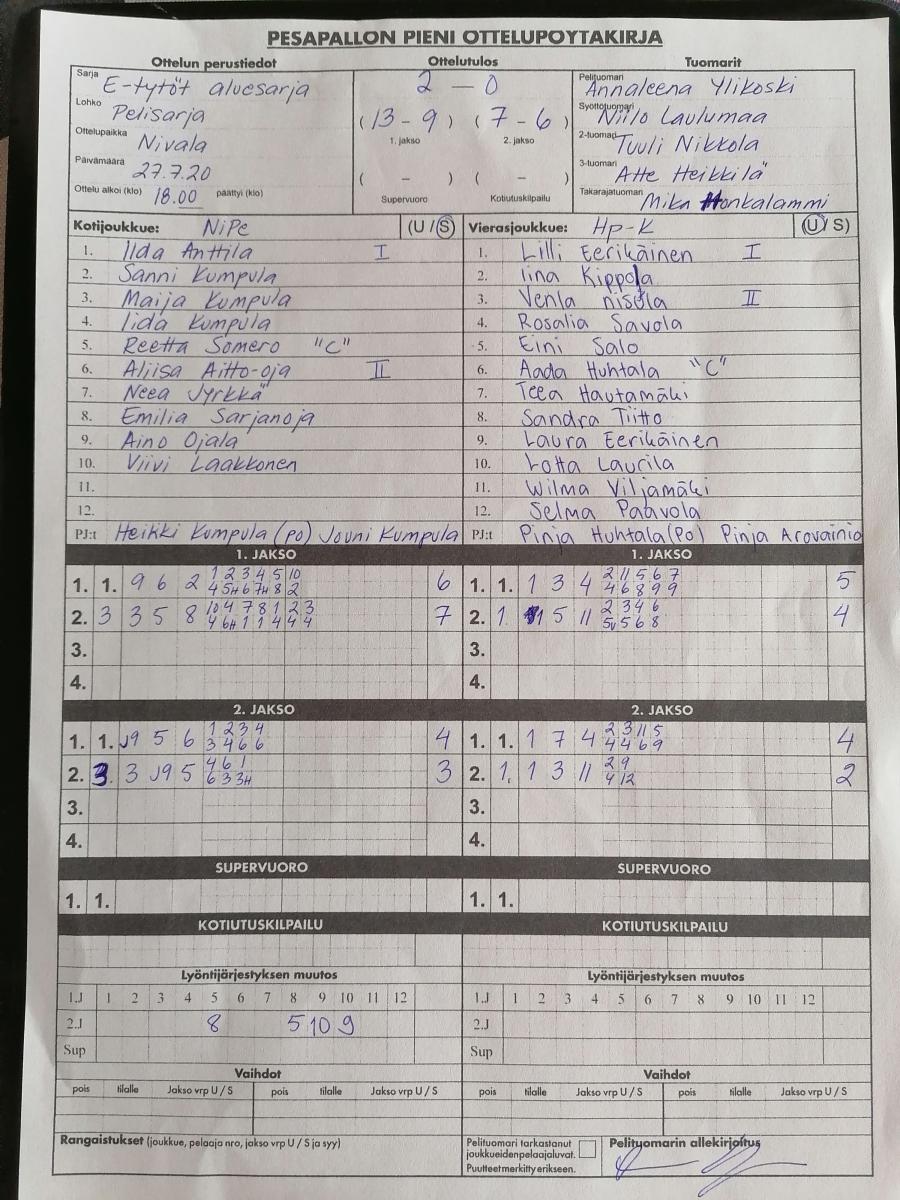 PESAPALLON PIENI OTTELUPOYTAKIRJA
Ottelun perustiedot Ottelutulos Tuomarit
Sarja E-tytöt aluesarja
Lohko Pelisarja
Ottelupaikka Nivala
Päivämäärä 27.7.20
Ottelu alkoi (klo) 18.00 päättyi (klo)
2 - 0
(13 - 9) (7 - 6)
1. jakso 2. jakso
( - ) ( - )
Supervuoro Kotiutuskilpailu
Pelituomari Annaleena Ylikoski
Syöttötuomari Niilo Laulumaa
2-tuomari Tuuli Nikkola
3-tuomari Atte Heikkilä
Takarajatuomari Mika Honkalammi
Kotijoukkue: NiPe (U / S)
1. Ilda Anttila I
2. Sanni Kumpula
3. Maija Kumpula
4. Iida Kumpula
5. Reetta Somero "C"
6. Aliisa Aitto-oja II
7. Neea Jyrkkä
8. Emilia Sarjanoja
9. Aino Ojala
10. Viivi Laakkonen
11.
12.
PJ:t Heikki Kumpula (po) Jouni Kumpula
Vierasjoukkue: Hp-K (U / S)
1. Lilli Eerikäinen I
2. Iina Kippola
3. Venla nisula II
4. Rosalia Savola
5. Eini Salo
6. Aada Huhtala "C"
7. Teea Hautamäki
8. Sandra Tiitto
9. Laura Eerikäinen
10. Lotta Laurila
11. Wilma Viljamäki
12. Selma Paavola
PJ:t Pinja Huhtala (Po) Pinja Arovainio
1. JAKSO
1. 1. 9 6 2 1 2 3 4 5 10 6
4 5H 6 7H 8 2
2. 3 3 5 8 10 4 7 8 1 2 3 7
4 6H 1 1 4 4 4
3.
4.
1. JAKSO
1. 1. 1 3 4 2 11 5 6 7 5
4 6 8 9 9
2. 1. 1 5 11 2 3 4 6 4
5v 5 6 8
3.
4.
2. JAKSO
1. 1. J9 5 6 1 2 3 4 4
3 4 6 6
2. 3. 3 J9 5 4 6 1 3
6 3 3H
3.
4.
2. JAKSO
1. 1. 1 7 4 2 3 11 5 4
4 4 6 9
2. 1. 1 3 11 2 9 2
4 12
3.
4.
SUPERVUORO SUPERVUORO
1. 1. 1. 1.
KOTIUTUSKILPAILU KOTIUTUSKILPAILU
Lyöntijärjestyksen muutos Lyöntijärjestyksen muutos
1.J 1 2 3 4 5 6 7 8 9 10 11 12 1.J 1 2 3 4 5 6 7 8 9 10 11 12
2.J 8 5 10 9 2.J
Sup Sup
Vaihdot Vaihdot
pois tilalle Jakso vrp U / S pois tilalle Jakso vrp U / S pois tilalle Jakso vrp U / S pois tilalle Jakso vrp U / S
Rangaistukset (joukkue, pelaaja nro, jakso vrp U / S ja syy)
Pelituomari tarkastanut
joukkueidenpelaajaluvat.
Puutteetmerkittyerikseen.
Pelituomarin allekirjoitus